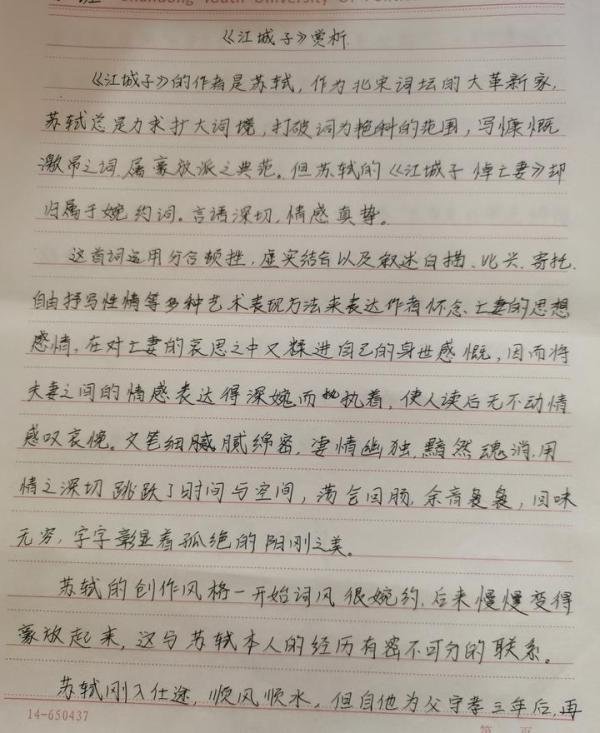 Shandong Youth University Of Politic
《江城子》赏析
《江城子》的作者是苏轼，作为北宋词坛的大革新家，
苏轼总是力求扩大词境，打破词为艳科的范围，写慷慨
激昂之词，属豪放派之典范。但苏轼的《江城子 悼亡妻》却
归属于婉约词。言语深切，情感真挚。
这首词运用分合顿挫，虚实结合以及叙述白描、比兴、寄托、
自由抒写性情等多种艺术表现方法来表达作者怀念亡妻的思想
感情，在对亡妻的哀思之中又糅进自己的身世感慨，因而将
夫妻之间的情感表达得深婉而执着，使人读后无不动情
感叹哀惋。文笔细腻腻绵密，凄情幽独，黯然魂消，用
情之深切跳跃了时间与空间，荡气回肠，余音袅袅，回味
无穷，字字彰显着孤绝的阳刚之美。
苏轼的创作风格一开始词风很婉约，后来慢慢变得
豪放起来，这与苏轼本人的经历有密不可分的联系。
苏轼刚入仕途，顺风顺水，但自他为父守孝三年后，再
14-650437
第 页